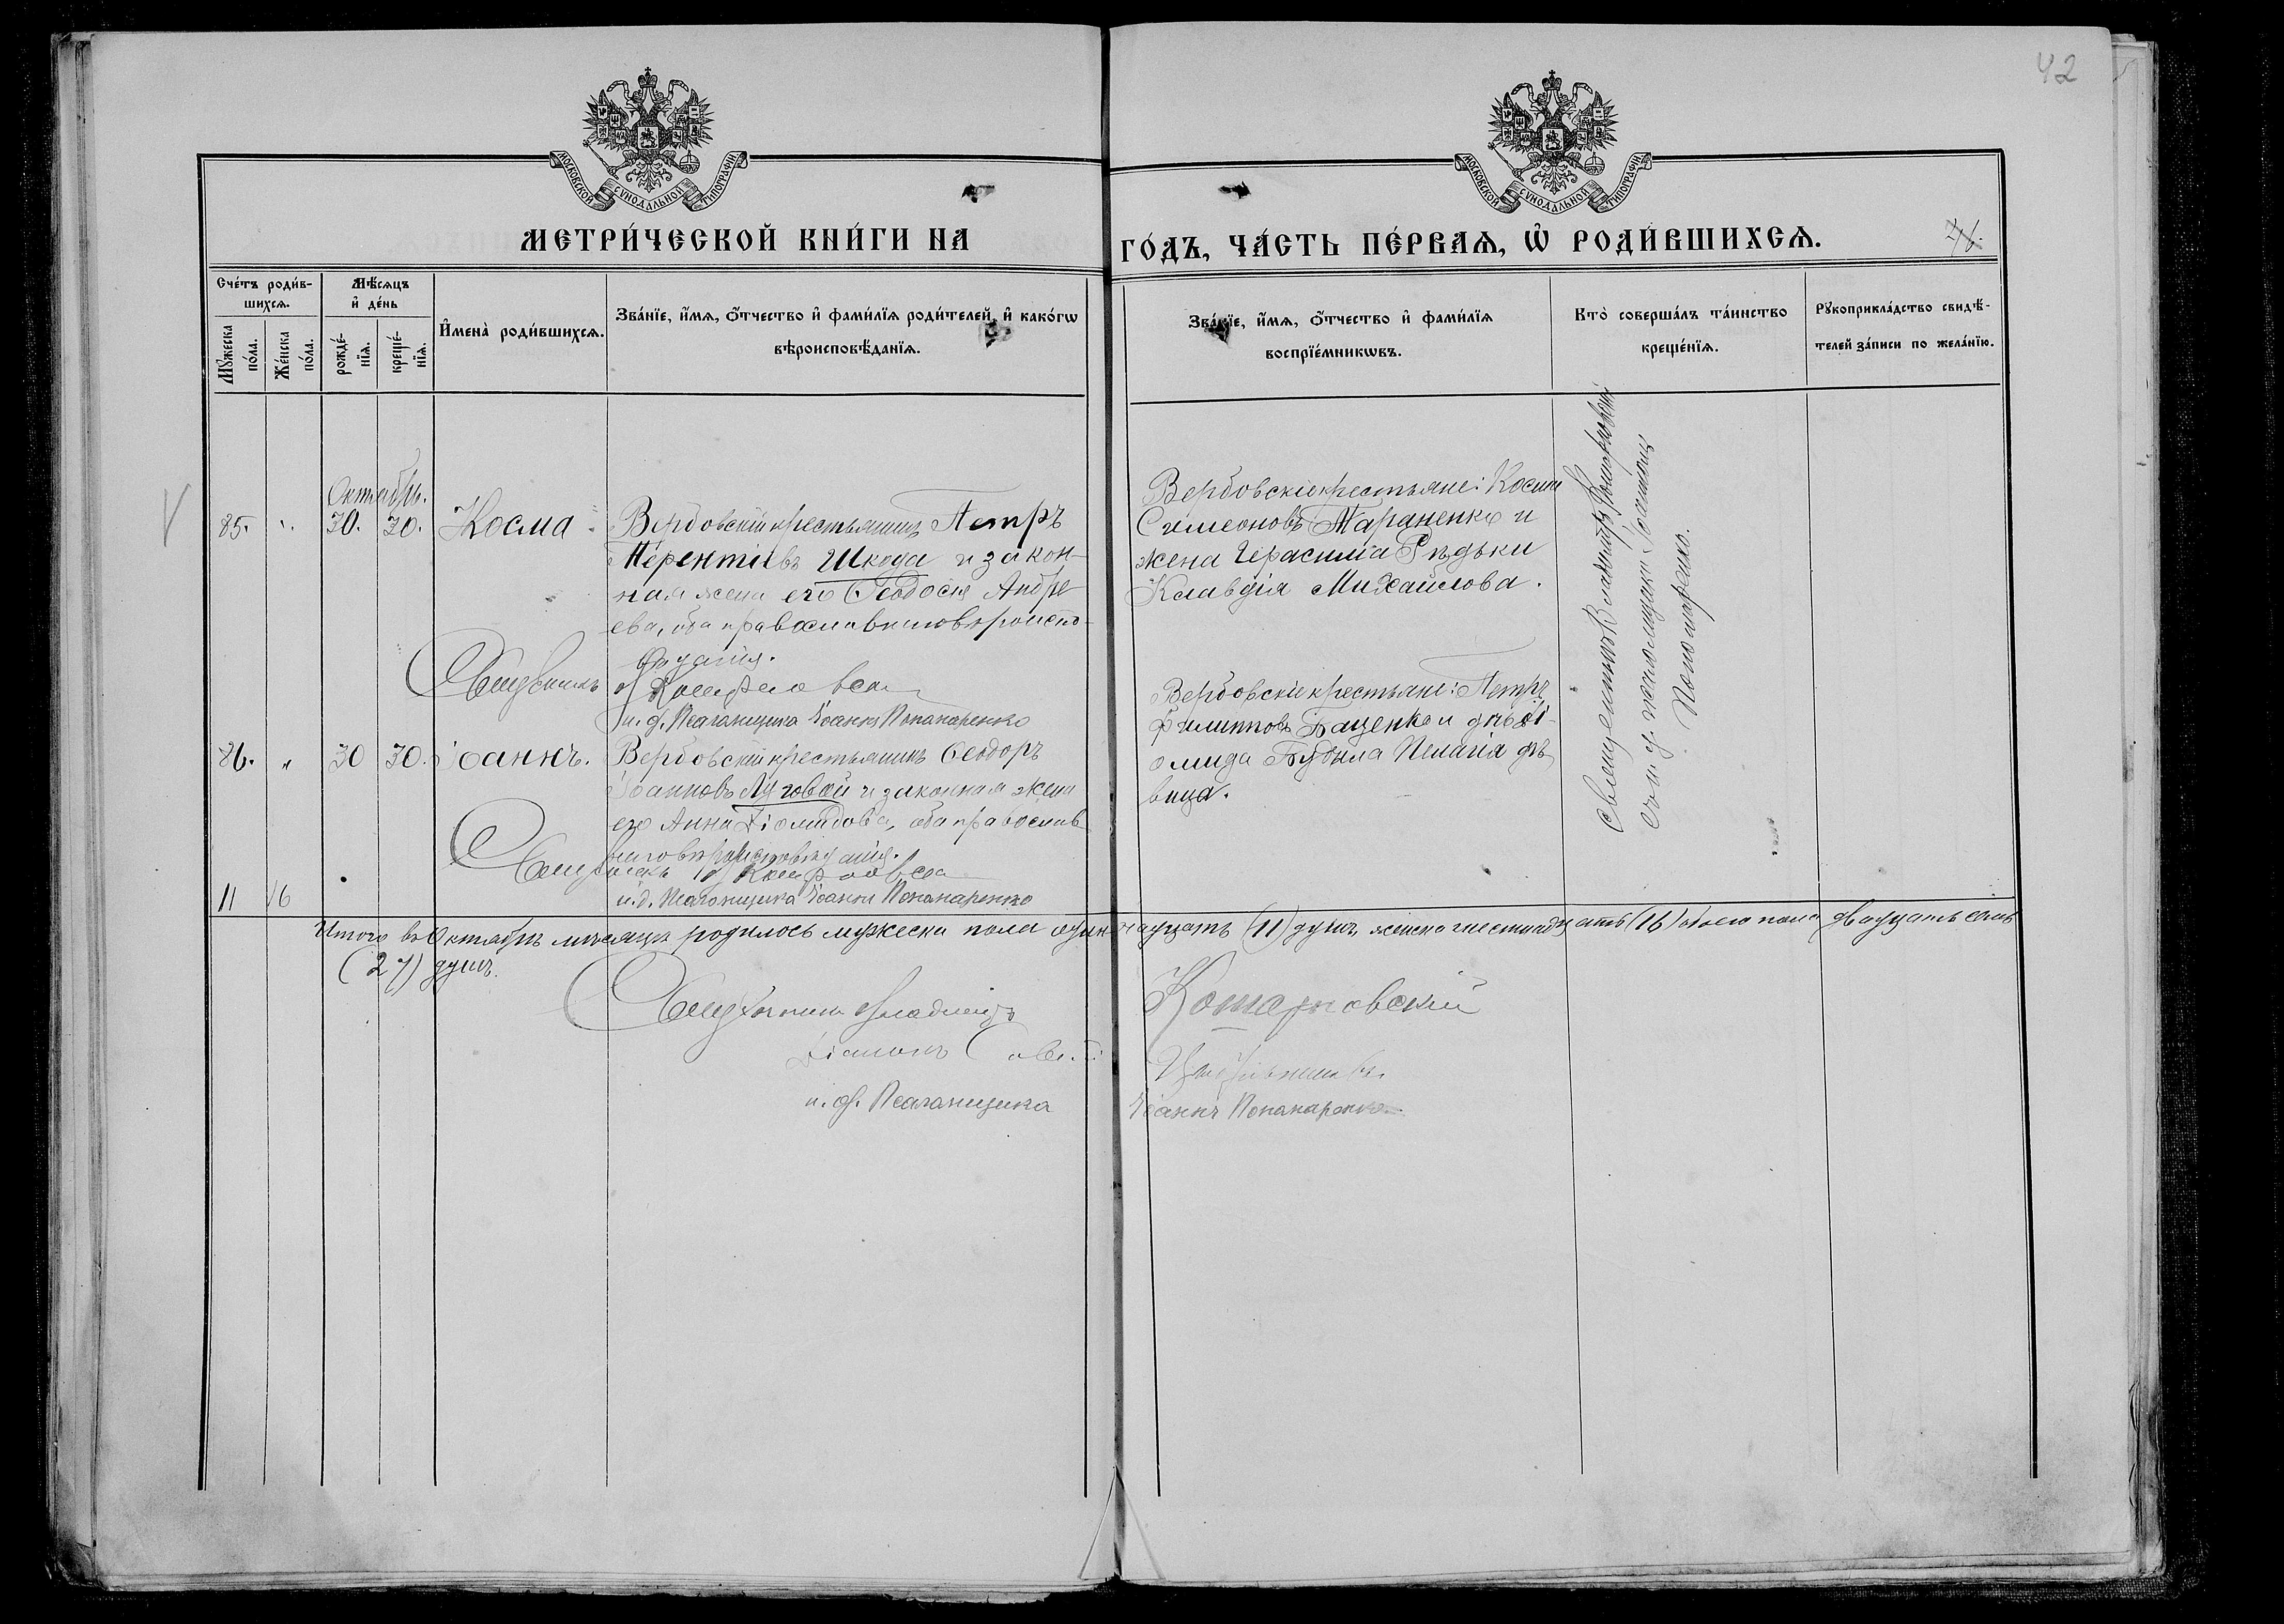 42
МОСКОВСКОЙ СѴНОДАЛЬНОЙ ТИПОГРАФІИ
МОСКОВСКОЙ СѴНОДАЛЬНОЙ ТИПОГРАФІИ
МЕТРИ́ЧЕСКОЙ КНИ́ГИ НА
ГО́ДЪ, ЧА́СТЬ ПЕ́РВАѦ, Ѡ҆ РОДИ́ВШИХСѦ.
Сче́тъ роди́в-
шихсѧ.
Мꙋ́жеска
по́ла.
Же́нска
по́ла.
Мѣ́сѧцъ
и҆ де́нь
рожде́-
нїѧ.
креще́-
нїѧ.
И҆мена̀ роди́вшихсѧ.
Зва́нїе, и҆́мѧ, ѻ҆́тчество и҆ фами́лїѧ роди́телей, и҆ како́гѡ
вѣроисповѣ́данїѧ.
Зва́нїе, и҆́мѧ, ѻ҆́тчество и҆ фами́лїѧ
воспрїе́мникѡвъ.
Кто̀ соверша́лъ та́инство
креще́нїѧ.
Рꙋкоприкла́дство свидѣ́-
телей за́писи по жела́нїю.
Октябрь.
85. „ 30. 30. Косма
Вербовскій крестьянинъ Петръ
Терентіевъ Шкода и закон-
ная жена его Ѳеодосія Андре
ева, оба православнаго вѣроиспо-
вѣданія.
Священникъ В Кошарновскій
и. д. Псаломщика Іоаннъ Пономаренко
Вербовскіе крестьяне: Косма
Симеоновъ Тараненко и
жена Герасима Рѣдьки
Клавдія Михайлова.
Священникъ Владиміръ Кошарновскій
съ и. д. псаломщика Іоанномъ
Пономаренко.
86. „ 30 30. Іоаннъ.
Вербовскій крестьянинъ Ѳеодоръ
Іоанновъ Луговой и законная жена
его Анна Діомидова, оба православ
наго вѣроисповѣданія.
Священникъ В Кошарновскій
и. д. Псаломщика Іоаннъ Пономаренко
Вербовскіе крестьяне: Петръ
Филипповъ Баценко и Ді-
омида Будыла Пелагія дѣ-
вица.
11 16
Итого въ Октябрѣ мѣсяцѣ родилось мужеска пола одиннадцать (11) душъ, женска шестнадцать (16) обоего пола двадцать семь
(27) душъ.
Священникъ Владиміръ Кошарновскій
Діаконъ
и. д. Псаломщика Іоаннъ Пономаренко